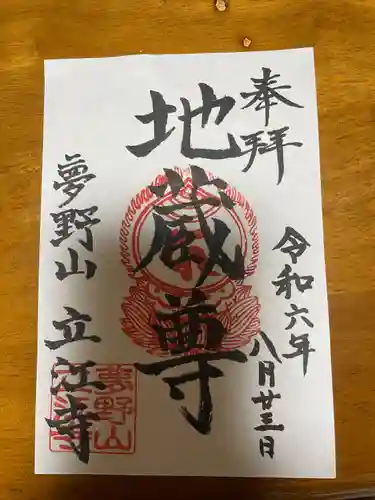 奉拝
令和六年
八月廿三日
地蔵尊
夢野山 立江寺